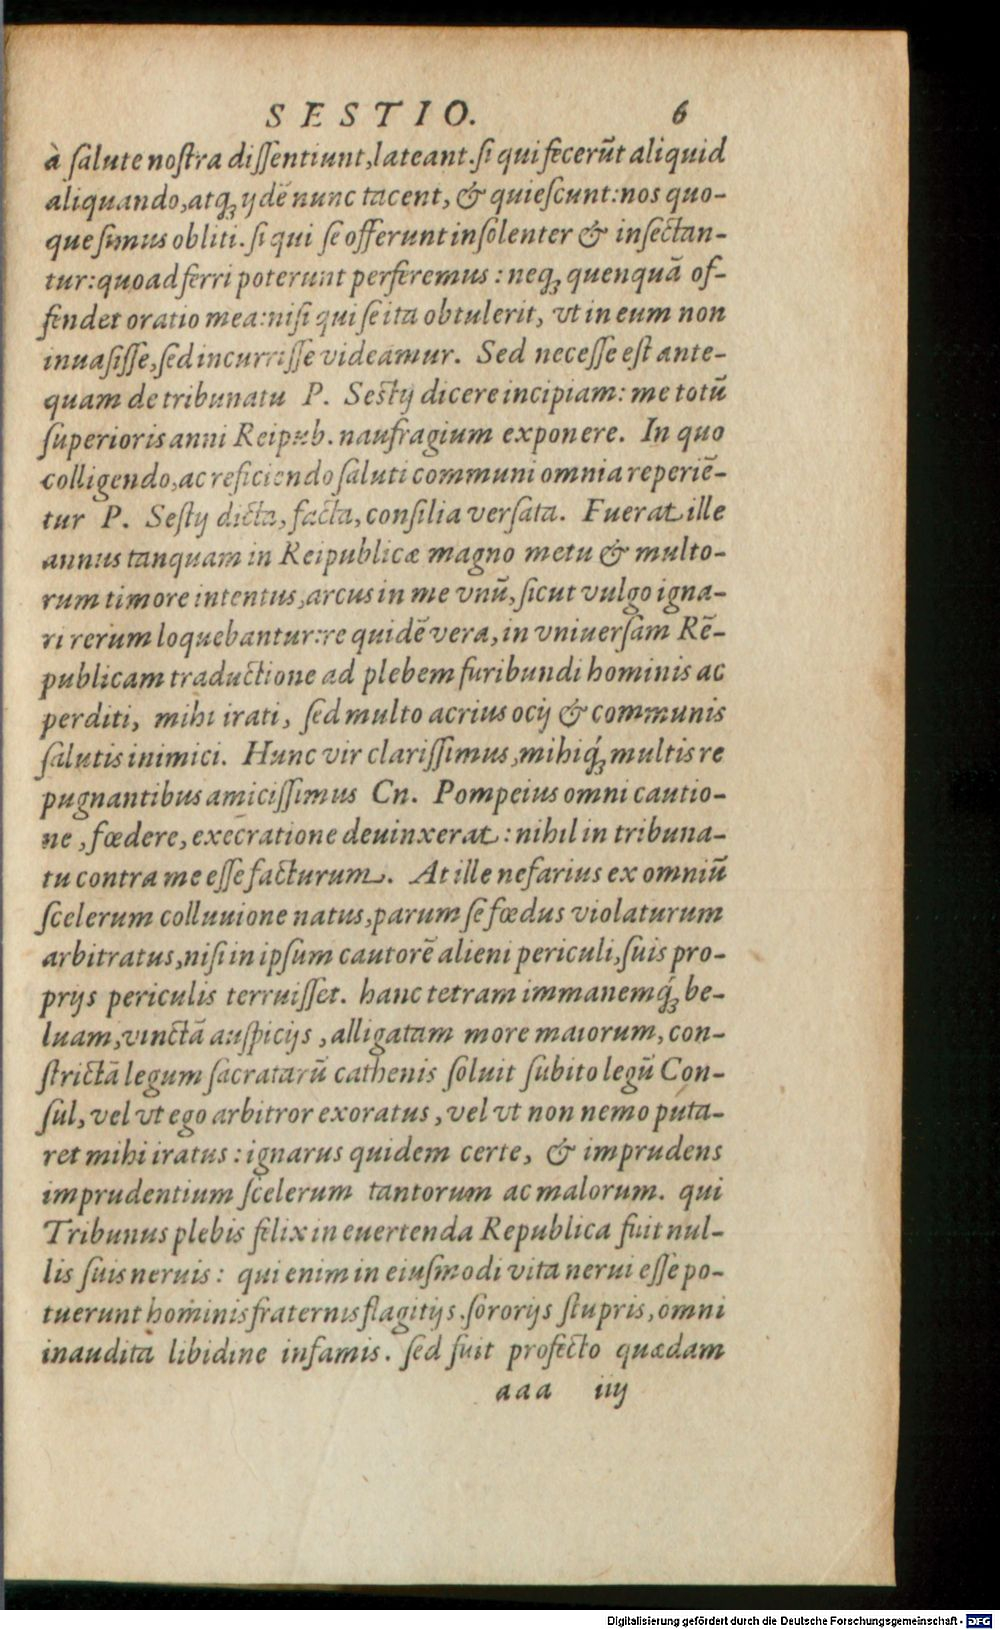 SESTIO. 6
à ſalute noſtra diſſentiunt, lateant. ſi qui fecerũt aliquid
aliquando, atqꝫ ijdẽ nunc tacent, & quieſcunt: nos quo-
que ſimus obliti. ſi qui ſe offerunt inſolenter & inſectan-
tur: quoad ferri poterunt perferemus: neqꝫ quenquã of-
fendet oratio mea: niſi qui ſe ita obtulerit, vt in eum non
inuaſiſſe, ſed incurriſſe videamur. Sed neceſſe eſt ante-
quam de tribunatu P. Seſtij dicere incipiam: me totũ
ſuperioris anni Reipub. naufragium exponere. In quo
colligendo, ac reficiendo ſaluti communi omnia reperiẽ-
tur P. Seſtij dicta, facta, conſilia verſata. Fuerat ille
annus tanquam in Reipublicæ magno metu & multo-
rum timore intentus, arcus in me vnũ, ſicut vulgo igna-
ri rerum loquebantur: re quidẽ vera, in vniuerſam Rẽ-
publicam traductione ad plebem furibundi hominis ac
perditi, mihi irati, ſed multo acrius ocij & communis
ſalutis inimici. Hunc vir clariſſimus, mihiqꝫ́ multis re
pugnantibus amiciſſimus Cn. Pompeius omni cautio-
ne, fœdere, execratione deuinxerat: nihil in tribuna-
tu contra me eſſe facturum. At ille nefarius ex omniũ
ſcelerum colluuione natus, parum ſe fœdus violaturum
arbitratus, niſi in ipſum cautorẽ alieni periculi, ſuis pro-
prijs periculis terruiſſet. hanc tetram immanemqꝫ́ be-
luam, vinctã auſpicijs, alligatam more maiorum, con-
ſtrictã legum ſacratarũ cathenis ſoluit ſubito legũ Con-
ſul, vel vt ego arbitror exoratus, vel vt non nemo puta-
ret mihi iratus: ignarus quidem certe, & imprudens
imprudentium ſcelerum tantorum ac malorum. qui
Tribunus plebis felix in euertenda Republica fuit nul-
lis ſuis neruis: qui enim in eiuſmodi vita nerui eſſe po-
tuerunt hominis fraternis flagitijs. ſororijs ſtupris, omni
inaudita libidine infamis. ſed fuit profecto quædam
aaa iiij
Digitalisierung gefördert durch die Deutsche Forschungsgemeinschaft - DFG